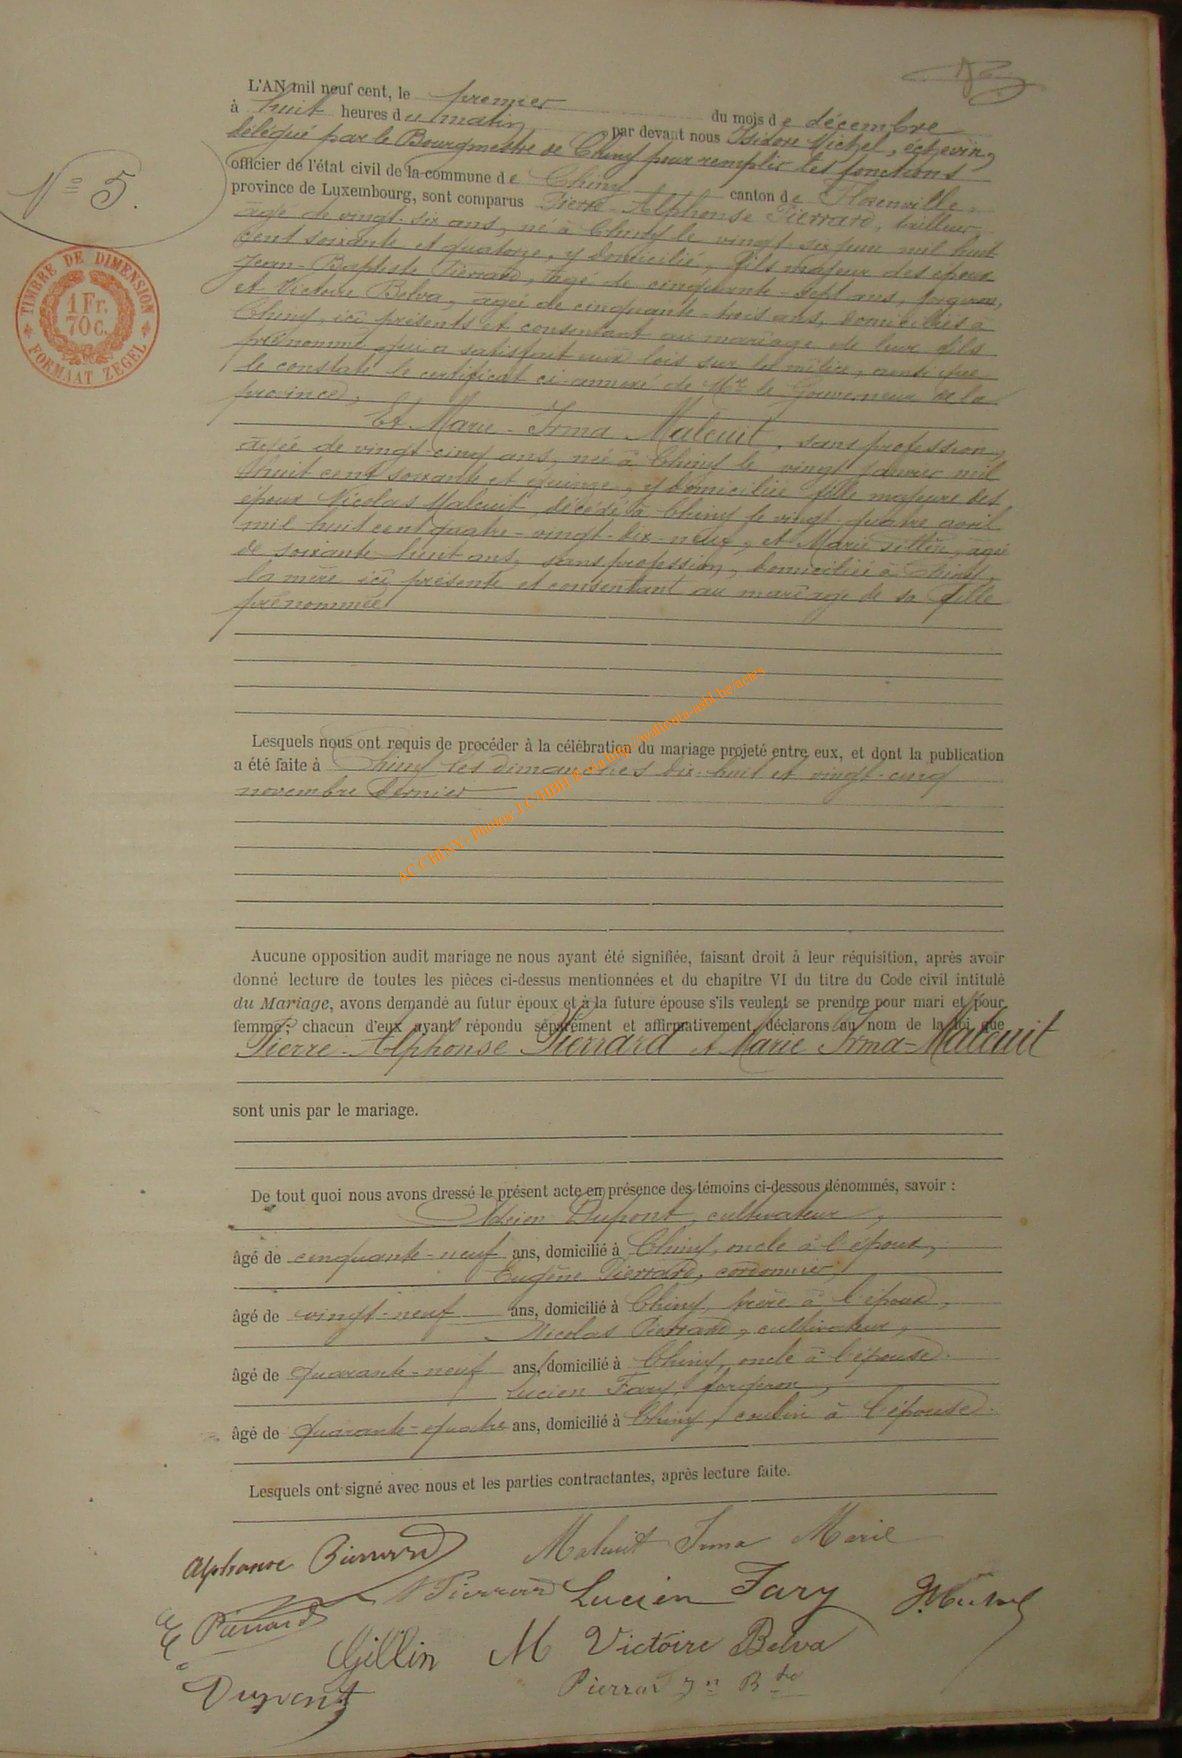 L'AN mil neuf cent, le premier du mois de décembre
à huit heures du matin par devant nous Isidore Michel, échevin,
délégué par le Bourgmestre de Chiny pour remplir les fonctions
officier de l'état civil de la commune de Chiny canton de Florenville,
province de Luxembourg, sont comparus Pierre-Alphonse Pierrard, tailleur,
âgé de vingt-six ans, né à Chiny le vingt-six juin mil huit
cent soixante et quatorze, y domicilié, fils majeur des époux
Jean-Baptiste Pierrard, âgé de cinquante-sept ans, forgeron,
et Victoire Belva, âgée de cinquante-trois ans, domiciliés à
Chiny, ici présents et consentant au mariage de leur fils
prénommé qui a satisfait aux lois sur la milice, ainsi que
le constate le certificat ci-annexé de Mr le Gouverneur de la
province,
Et Marie-Irma Maleuit, sans profession,
âgée de vingt-cinq ans, née à Chiny le vingt janvier mil
huit cent soixante et quinze, y domiciliée fille majeure des
époux Nicolas Maleuit, décédé à Chiny le vingt-quatre avril
mil huit cent quatre-vingt-dix-neuf, et Marie Gillin, âgée
de soixante huit ans, sans profession, domiciliée à Chiny,
la mère ici présente et consentant au mariage de sa fille
prénommée
N° 5.
TIMBRE DE DIMENSION
1 Fr.
70 c.
FORMAAT ZEGEL
Lesquels nous ont requis de procéder à la célébration du mariage projeté entre eux, et dont la publication
a été faite à Chiny les dimanches dix-huit et vingt-cinq
novembre dernier
Aucune opposition audit mariage ne nous ayant été signifiée, faisant droit à leur réquisition, après avoir
donné lecture de toutes les pièces ci-dessus mentionnées et du chapitre VI du titre du Code civil intitulé
du Mariage, avons demandé au futur époux et à la future épouse s'ils veulent se prendre pour mari et pour
femme; chacun d'eux ayant répondu séparément et affirmativement, déclarons au nom de la loi que
Pierre-Alphonse Pierrard et Marie Irma-Maleuit
sont unis par le mariage.
De tout quoi nous avons dressé le présent acte en présence des témoins ci-dessous dénommés, savoir :
Adrien Dupont, cultivateur,
âgé de cinquante-neuf ans, domicilié à Chiny, oncle à l'époux,
Eugène Pierrard, cordonnier,
âgé de vingt-neuf ans, domicilié à Chiny, frère à l'époux,
Nicolas Pierrard, cultivateur,
âgé de quarante-neuf ans, domicilié à Chiny, oncle à l'épouse.
Lucien Fary, forgeron,
âgé de quarante-quatre ans, domicilié à Chiny, cousin à l'épouse.
Lesquels ont signé avec nous et les parties contractantes, après lecture faite.
Alphonse Pierrard Maleuit Irma Marie
N Pierrard Lucien Fary I. Michel
E Pierrard
Gillin M Victoire Belva
Dupont Pierrard Jn Bte